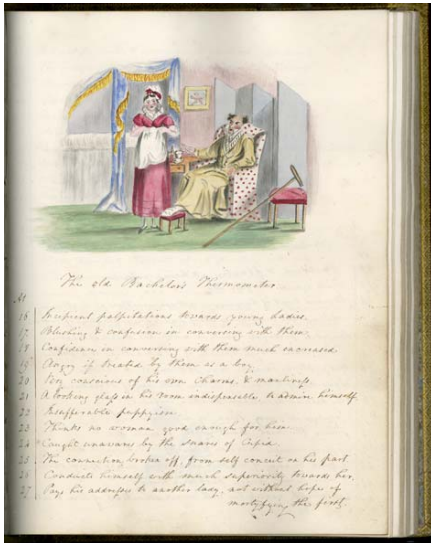 The old Bachelor's Thermometer.
At
16 Incipient palpitations towards young Ladies.
17 Blushing & confusion in conversing with them.
18 Confidence in conversing with them much increased.
19 Angry if treated by them as a boy.
20 Very conscious of his own Charms & manliness.
21 A looking glass in his room indispensable to admire himself
22 Insufferable puppyism.
23 Thinks no woman good enough for him.
24 Caught unawares by the snares of Cupid.
25 The connection broken off, from self conceit on his part.
26 Conducts himself with much superiority towards her.
27 Pays his addresses to another lady, not without hope of
mortifying the first.